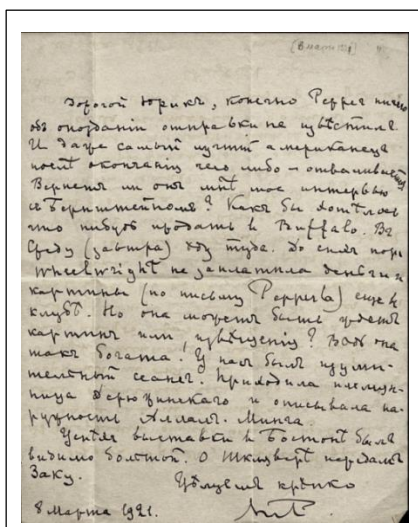 [8 марта 1921]
Дорогой Юрикъ, конечно Pepper ничего
объ опозданіи отправки не извѣстилъ.
И даже самый лучшій американецъ
послѣ окончанія чего либо – отваливается.
Вернетъ ли онъ мнѣ мое интервью
съ Бернштейномъ? Какъ бы хотѣлось
что нибудь продать въ Buffalo. Въ
Среду (завтра) ѣду туда. До сихъ поръ
Wheelwright не заплатила деньги и
картины (по письму Pepper'а) еще въ
клубѣ. Но она можетъ быть ждетъ
картинъ или извѣщенія? Вѣдь она
такъ богата. У насъ былъ изуми-
тельный сеансъ. Приходила племян-
ница Дерюжинскаго и описывала на-
ружность Аллалъ-Минга.
выставки въ Бостонѣ былъ
видимо О передалъ
Заку.
Цѣлуемъ крѣпко
8 Марта 1921.